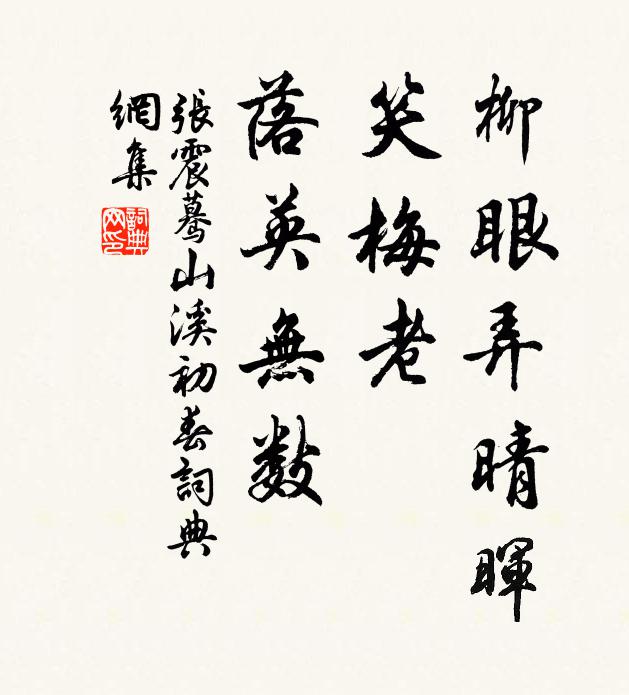 柳眼弄晴暉
笑梅老
落英無數
張震蓦山溪初春詞典
網集
詞典
网印